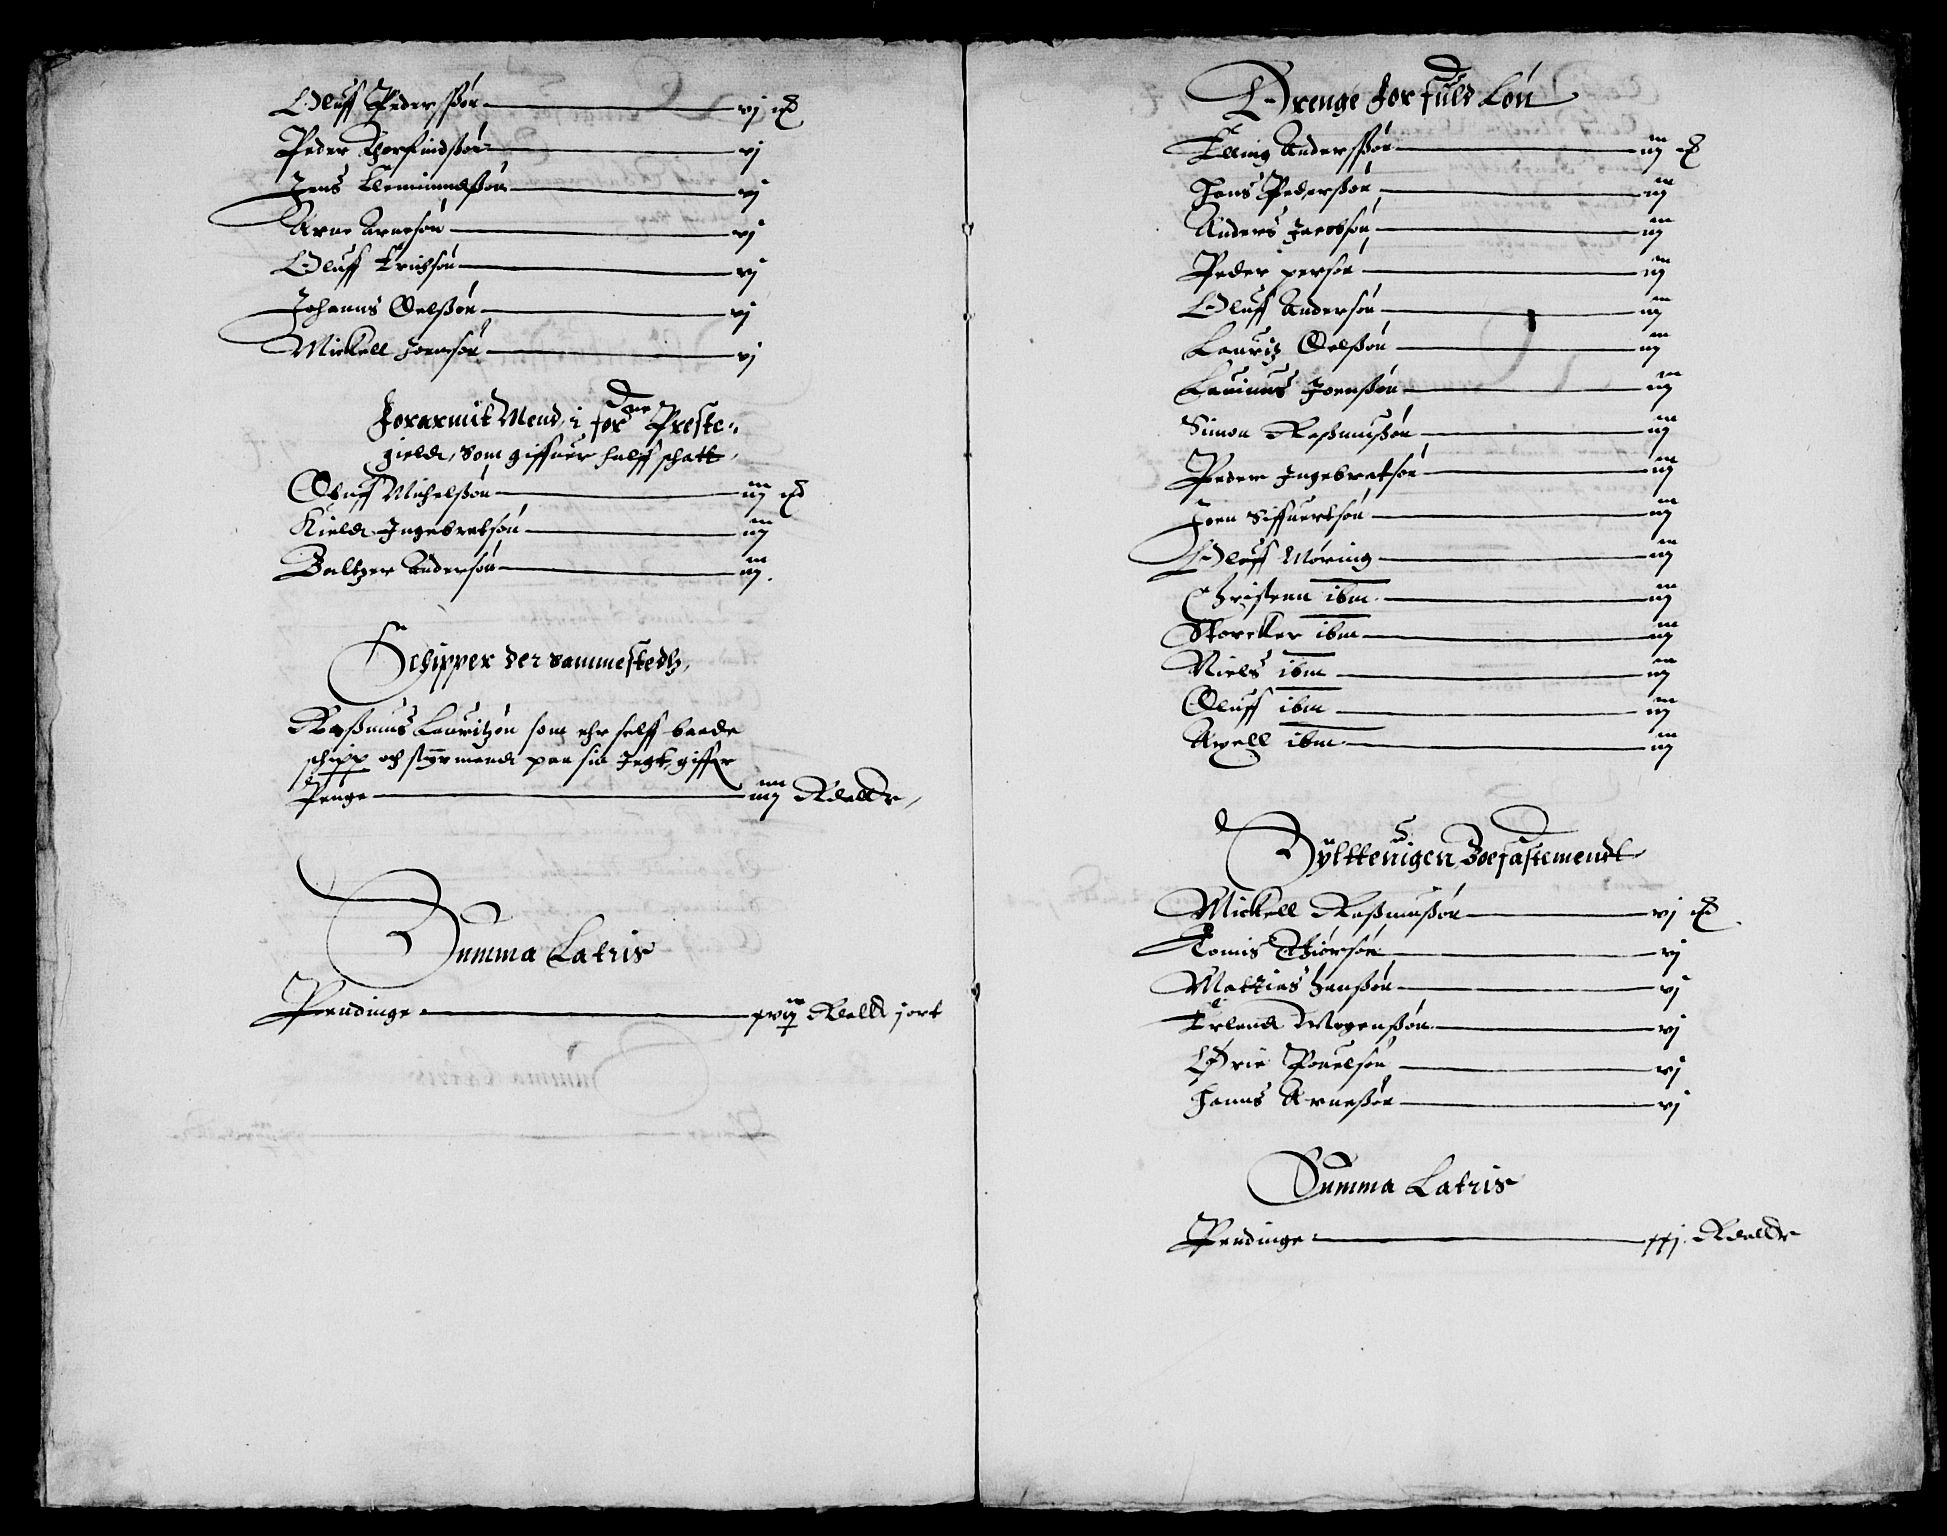 Oluff Pedersßøn — vj ort
Peder Thorfindßøn — vj
Jens Clemmindßøn — vj
Arne Arnesøn — vj
Oluff Erichsøn — vj
Johanns Oelßøn — vj
Mickell Joensøn — vj
Forarmit Mend, i forne Preste-
gield, som giffuer halff schatt
Oluff Michelßøn — iij ort
Kield Ingebretsøn — iij
Baltzer Andersøn — iij
Schipper der sammestedtz,
Raßmus Lauritzøn som ehr selff baade
schipp och styrmend paa sin Jegt, giffer
Penge — iiij Rdallr,
Summa Latris
Pendinge — xviij Rdallr j ort
Drenge for fuld Løn
Elling Andersßøn — iij ort
Hans Pederßøn — iij
Anders Jacobsøn — iij
Peder persøn — iij
Oluff Andersøn — iij
Lauritz Oelßøn — iij
Laurinus Joenßøn — iij
Simon Raßmusßøn — iij
Peder Ingebretsøn — iij
Joen Siffuertsøn — iij
Oluff Møring — iij
Christenn ibm — iij
Storcker ibm — iij
Niels ibm — iij
Oluff ibm — iij
Axell ibm — iij
Bÿltteuigen Boefastemendt
Mickell Raßmusßøn — vj ort
Tomis Thiørsøn — vj
Mattias Hanßøn — vj
Erlend Mogenßøn — vj
Ørie Pouelsøn — vj
Hanns Arneßøn — vj
Summa Latris
Pendinge — xxj Rdallr